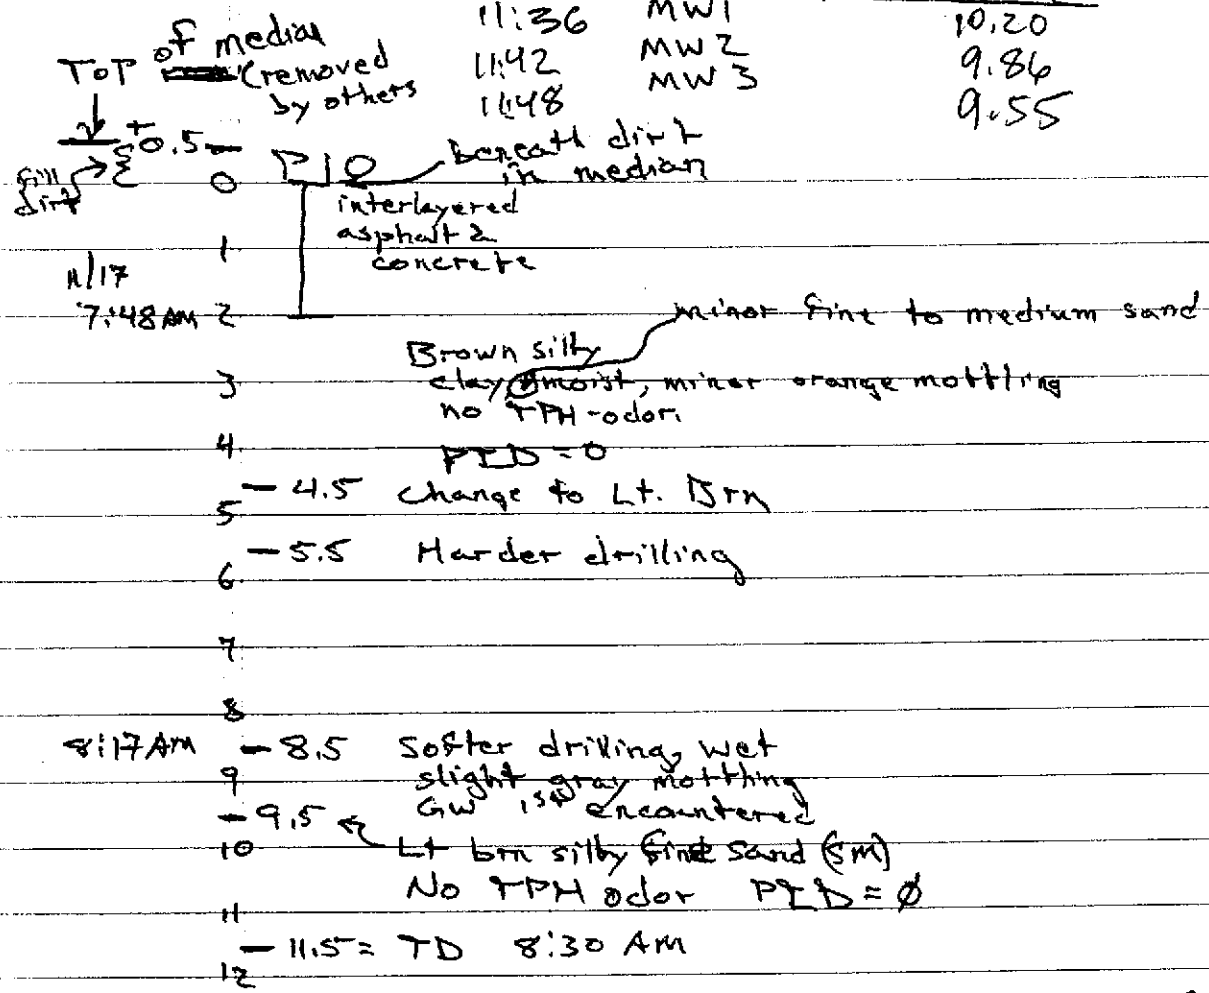 11:36 MW1 10.20
11:42 MW2 9.86
11:48 MW3 9.55
TOP of median
(removed
by others
+0.5
fill
dirt
0
P10
Beneath dirt
in median
interlayered
asphalt &
concrete
1
11/17
7:48 AM 2
minor fine to medium sand
Brown silty
3 clay, moist, minor orange mottling
no TPH-odor.
4 PID = 0
- 4.5 Change to Lt. Brn
5
- 5.5 Harder drilling
6
7
8
8:17 AM - 8.5 Softer drilling, wet
9 slight gray motthing
GW 1st encountered
- 9.5
10 Lt brn silty fine sand (SM)
No TPH odor PID = Ø
11
- 11.5 = TD 8:30 AM
12